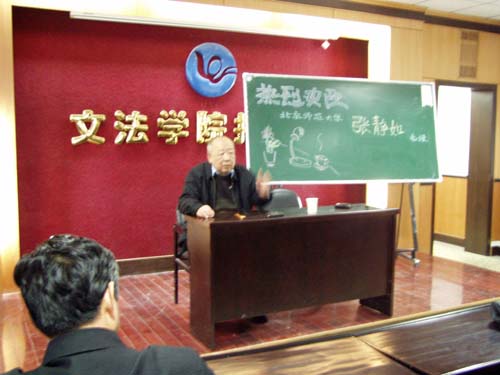 文法学院
热烈欢迎
北京师范大学 张静如 教授